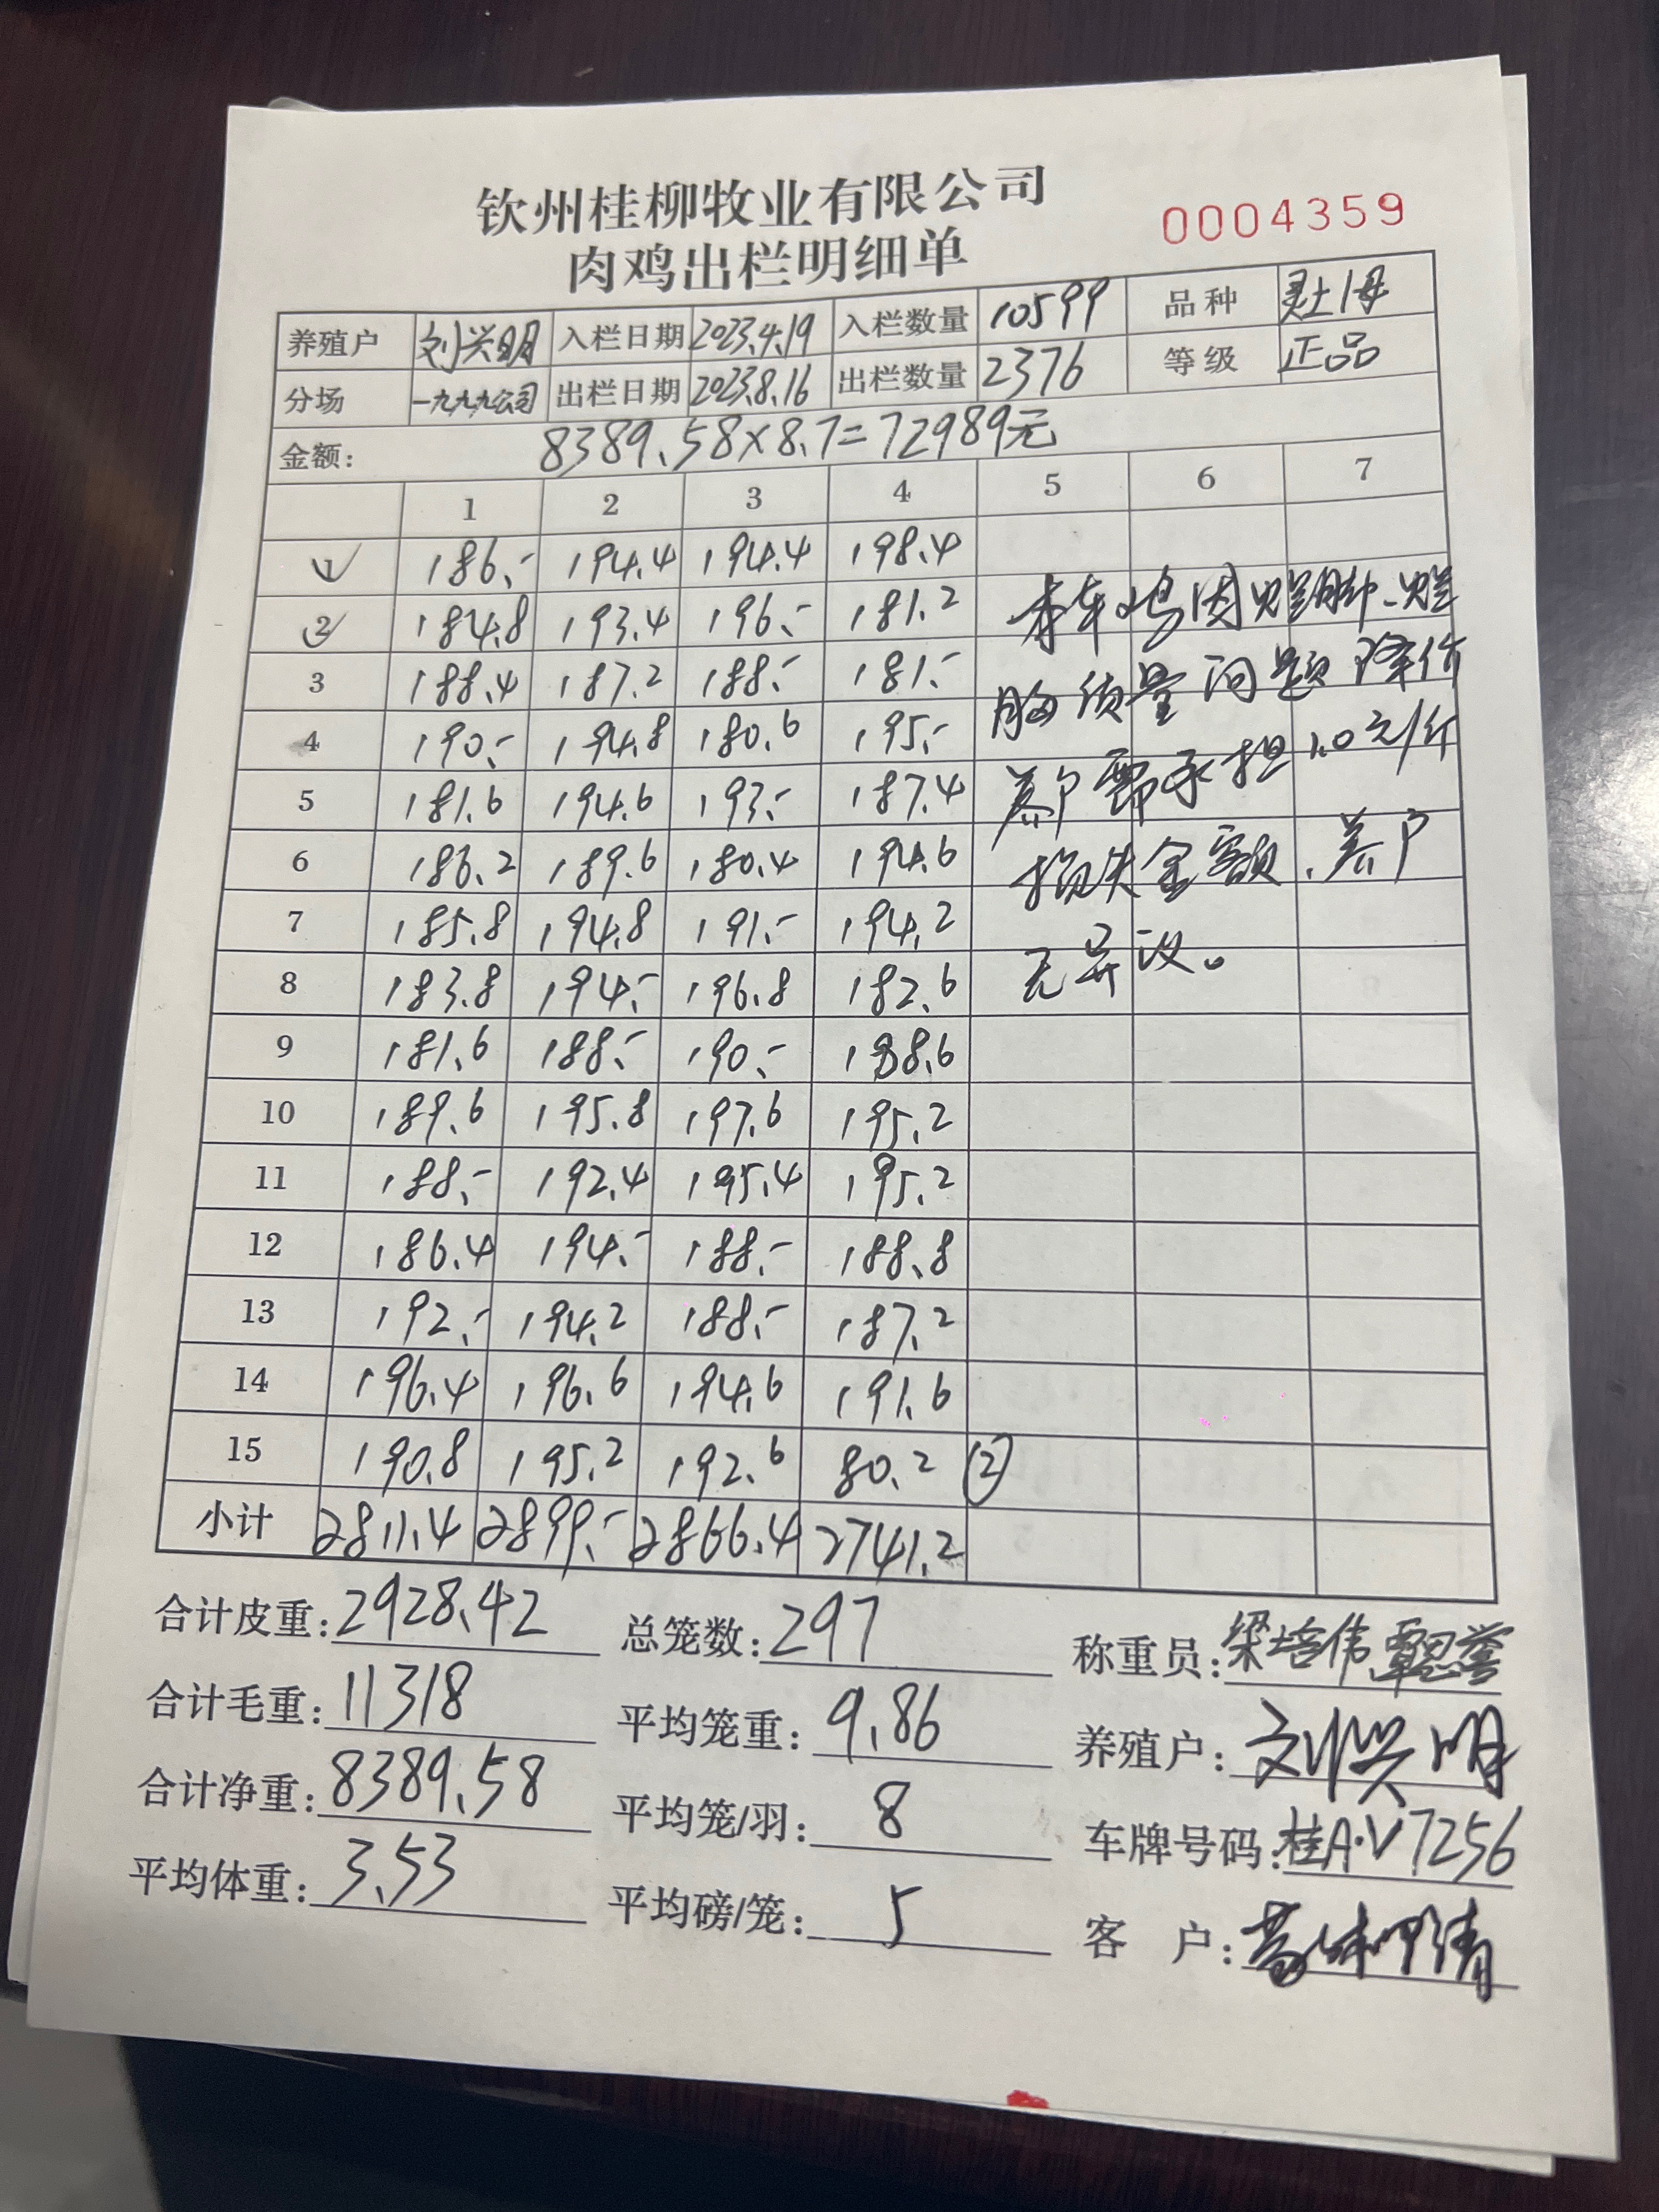 钦州桂柳牧业有限公司
0004359
肉鸡出栏明细单
养殖户 刘兴明 入栏日期 2023.4.19 入栏数量 10599 品种 灵土1母
分场 一九九九公司 出栏日期 2023.8.16 出栏数量 2376 等级 正品
金额: 8389.58×8.7=72989元
1 2 3 4 5 6 7
1 186.- 194.4 194.4 198.4
2 184.8 193.4 196.- 181.2 本车鸡因
3 188.4 187.2 188.- 181.- 胸质量问题降价
4 190.- 194.8 180.6 195.- 养户需承担1.0元/斤
5 181.6 194.6 193.- 187.4
6 186.2 189.6 180.4 194.6 损失金额、养户
7 185.8 194.8 191.- 194.2
8 183.8 194.- 196.8 182.6 无异议。
9 181.6 188.- 190.- 188.6
10 189.6 195.8 197.6 195.2
11 188.- 192.4 195.4 195.2
12 186.4 194.- 188.- 188.8
13 192.- 194.2 188.- 187.2
14 196.4 196.6 194.6 191.6
15 190.8 195.2 192.6 80.2 ②
小计 2811.4 2899.- 2866.4 2741.2
合计皮重: 2928.42 总笼数: 297 称重员: 梁培伟 覃思誉
合计毛重: 11318 平均笼重: 9.86 养殖户: 刘兴明
合计净重: 8389.58 平均笼/羽: 8 车牌号码: 桂A·V7256
平均体重: 3.53 平均磅/笼: 5 客 户: